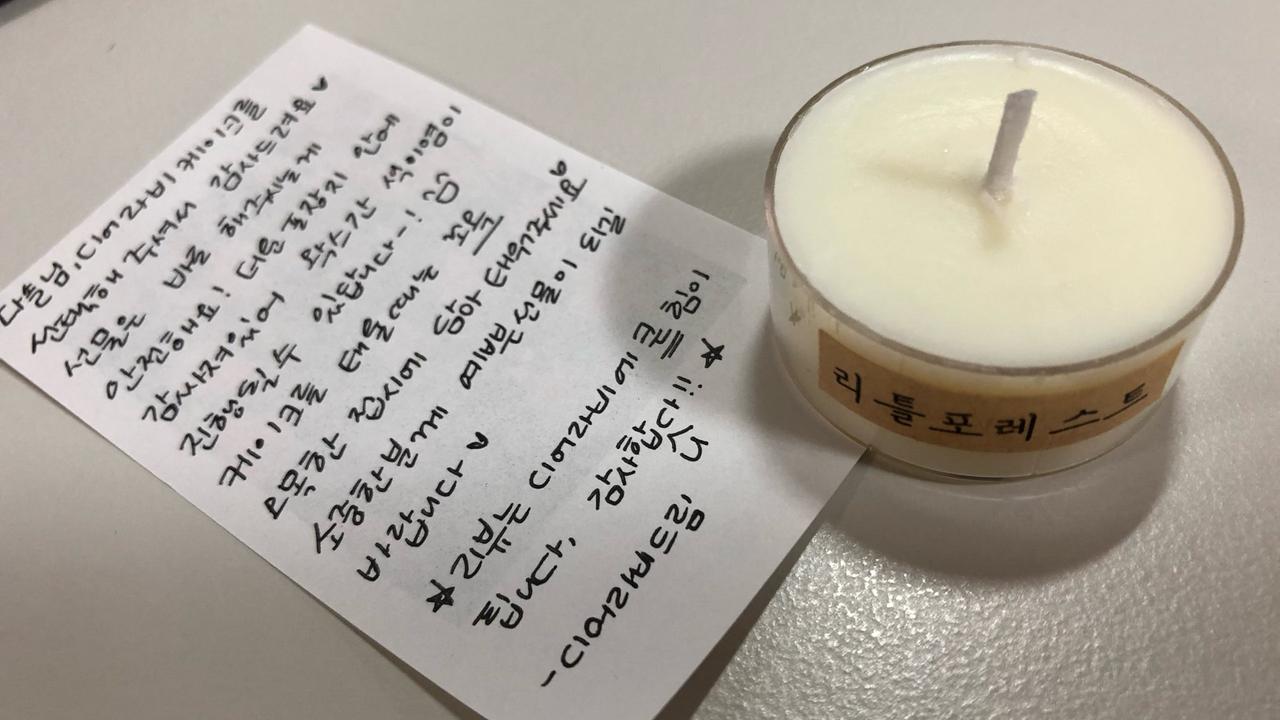 다솔님, 디어라비 케이크를
선택해 주셔서 감사드려요♥
선물은 바로 해주시는게
안전해요! 더운 포장지 안에
감사져있어 왁스간 섞이염이
진행될수 있답니다~!
케이크를 태울때는 꼬옥
오목한 접시에 담아 태워주세요♥
소중한분께 예쁜선물이 되길
바랍니다♥
★리뷰는 디어라비에 큰 힘이
됩니다, 감사합니다!! ★
-디어라비드림
리틀포레스트